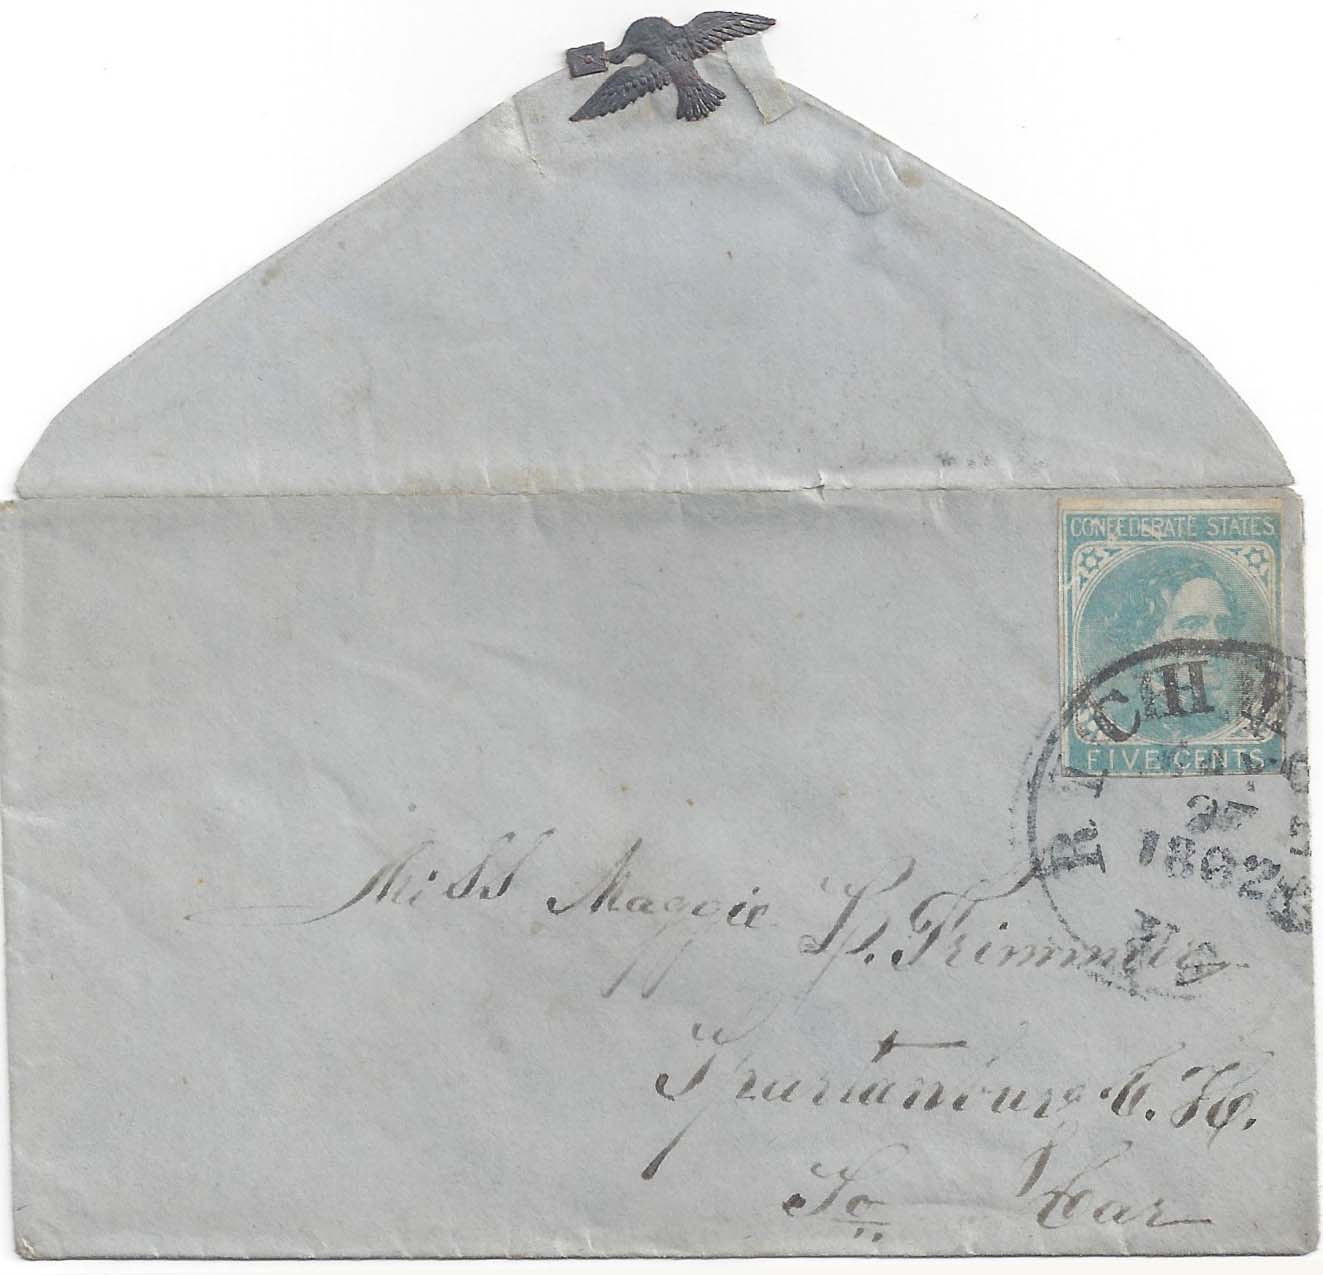 CONFEDERATE STATES
FIVE CENTS
RICHMOND
27
1862
VA
Miss Maggie P. Trimmier
Spartanburg C. H.
So Car